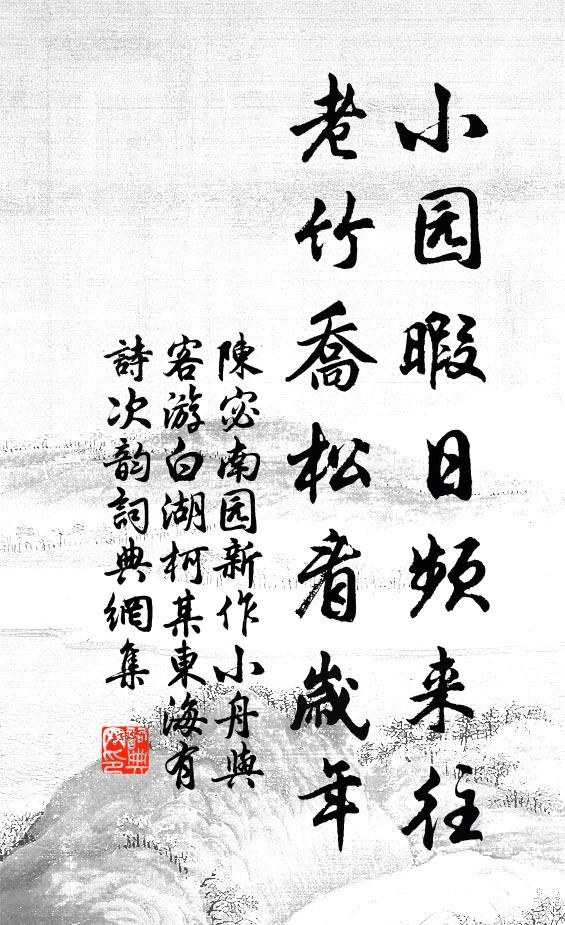 小园暇日频来往
老竹喬松看歲年
陳宓南园新作小舟與
客游白湖柯某東海有
詩次韵詞典網集